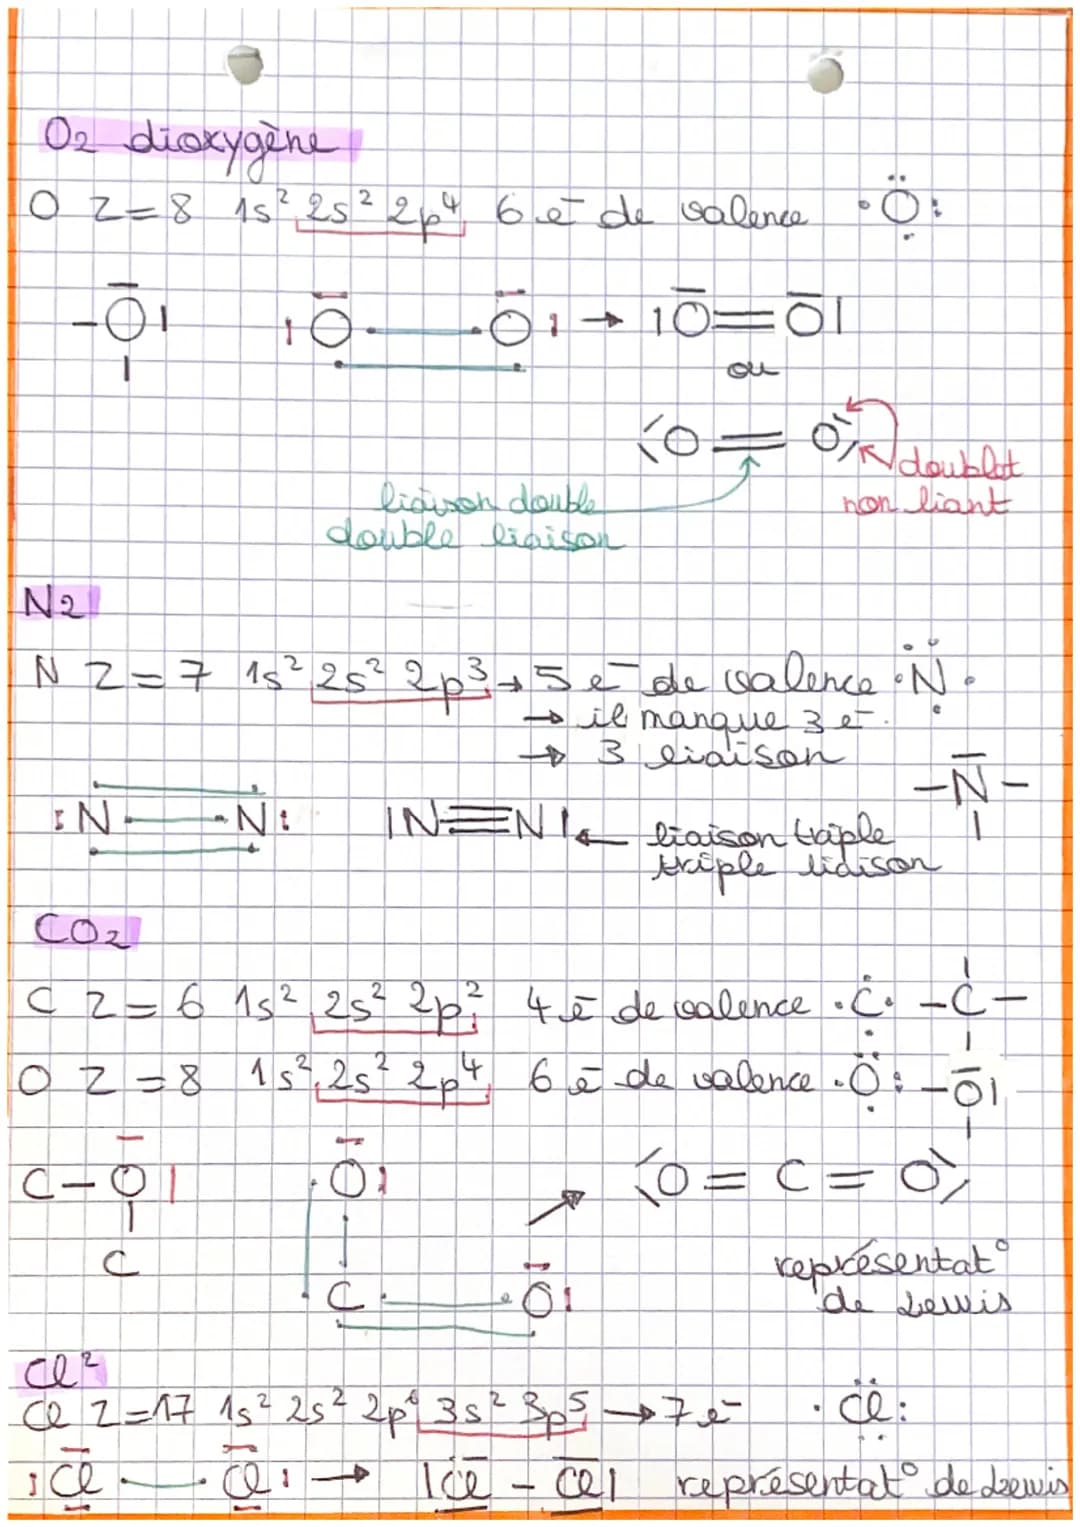 O₂ dioxygène
O Z=8 1s² 2s² 2p⁴ 6 e⁻ de valence ·Ö:
-O| |O O| → |O=O|
ou
O=O
doublet
non liant
liaison double
double liaison
N₂
N Z=7 1s² 2s² 2p³ → 5 e⁻ de valence ·N·
→ il manque 3 e⁻.
→ 3 liaison
-N-
:N N: |N≡N| ← liaison triple
triple liaison
CO₂
C Z=6 1s² 2s² 2p² 4 e⁻ de valence ·C· -C-
O Z=8 1s² 2s² 2p⁴ 6 e⁻ de valence ·Ö: -O|
C-O| O| O=C=O
C
C O|
représentat°
de Lewis
Cl²
Cl Z=17 1s² 2s² 2p⁶ 3s² 3p⁵ → 7 e⁻ ·Cl:
:Cl Cl: → |Cl-Cl| représentat° de Lewis